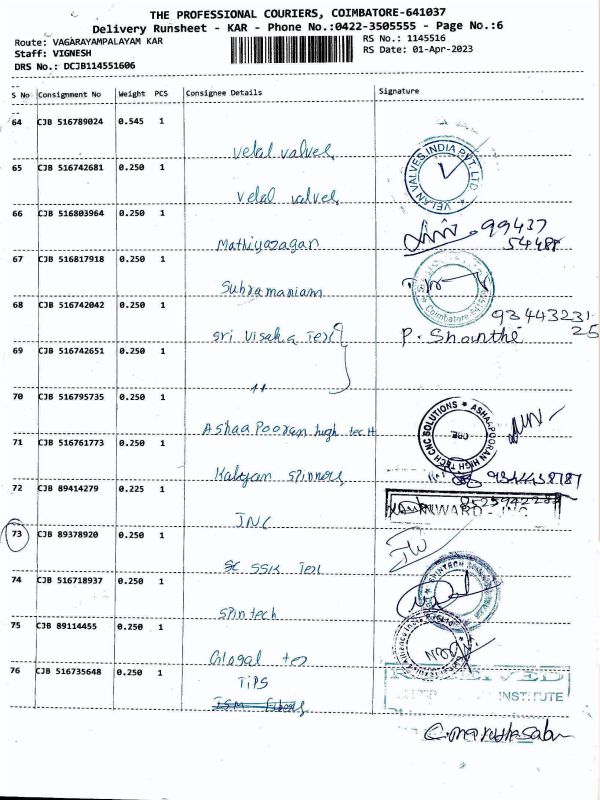 THE PROFESSIONAL COURIERS, COIMBATORE-641037
Delivery Runsheet - KAR - Phone No.:0422-3505555 - Page No.:6
Route: VAGARAYAMPALAYAM KAR
RS No.: 1145516
Staff: VIGNESH
RS Date: 01-Apr-2023
DRS No.: DCJB114551606
S No Consignment No Weight PCS Consignee Details Signature
64 CJB 516789024 0.545 1
Velal valves
65 CJB 516742681 0.250 1
VELAN VALVES INDIA PVT. LTD
Velal valves
66 CJB 516803964 0.250 1
Mathiyazagan
99437
54488
67 CJB 516817918 0.250 1
Subramaniam
Coimbatore
68 CJB 516742042 0.250 1
93443231
25
Sri Visaka Tex
P. Shanthi
69 CJB 516742651 0.250 1
"
70 CJB 516795735 0.250 1
Ashaa Pooran high tech
ASHAA POORAN HIGH TECH CNC SOLUTIONS
CBE
71 CJB 516761773 0.250 1
Kalyan spinners
72 CJB 89414279 0.225 1
INWARD
INC
73 CJB 89378920 0.250 1
SC SSK Tex
74 CJB 516718937 0.250 1
SPINTECH
Spintech
75 CJB 89114455 0.250 1
Glogal tex
76 CJB 516735648 0.250 1
RECEIVED
TIPS
INSTITUTE